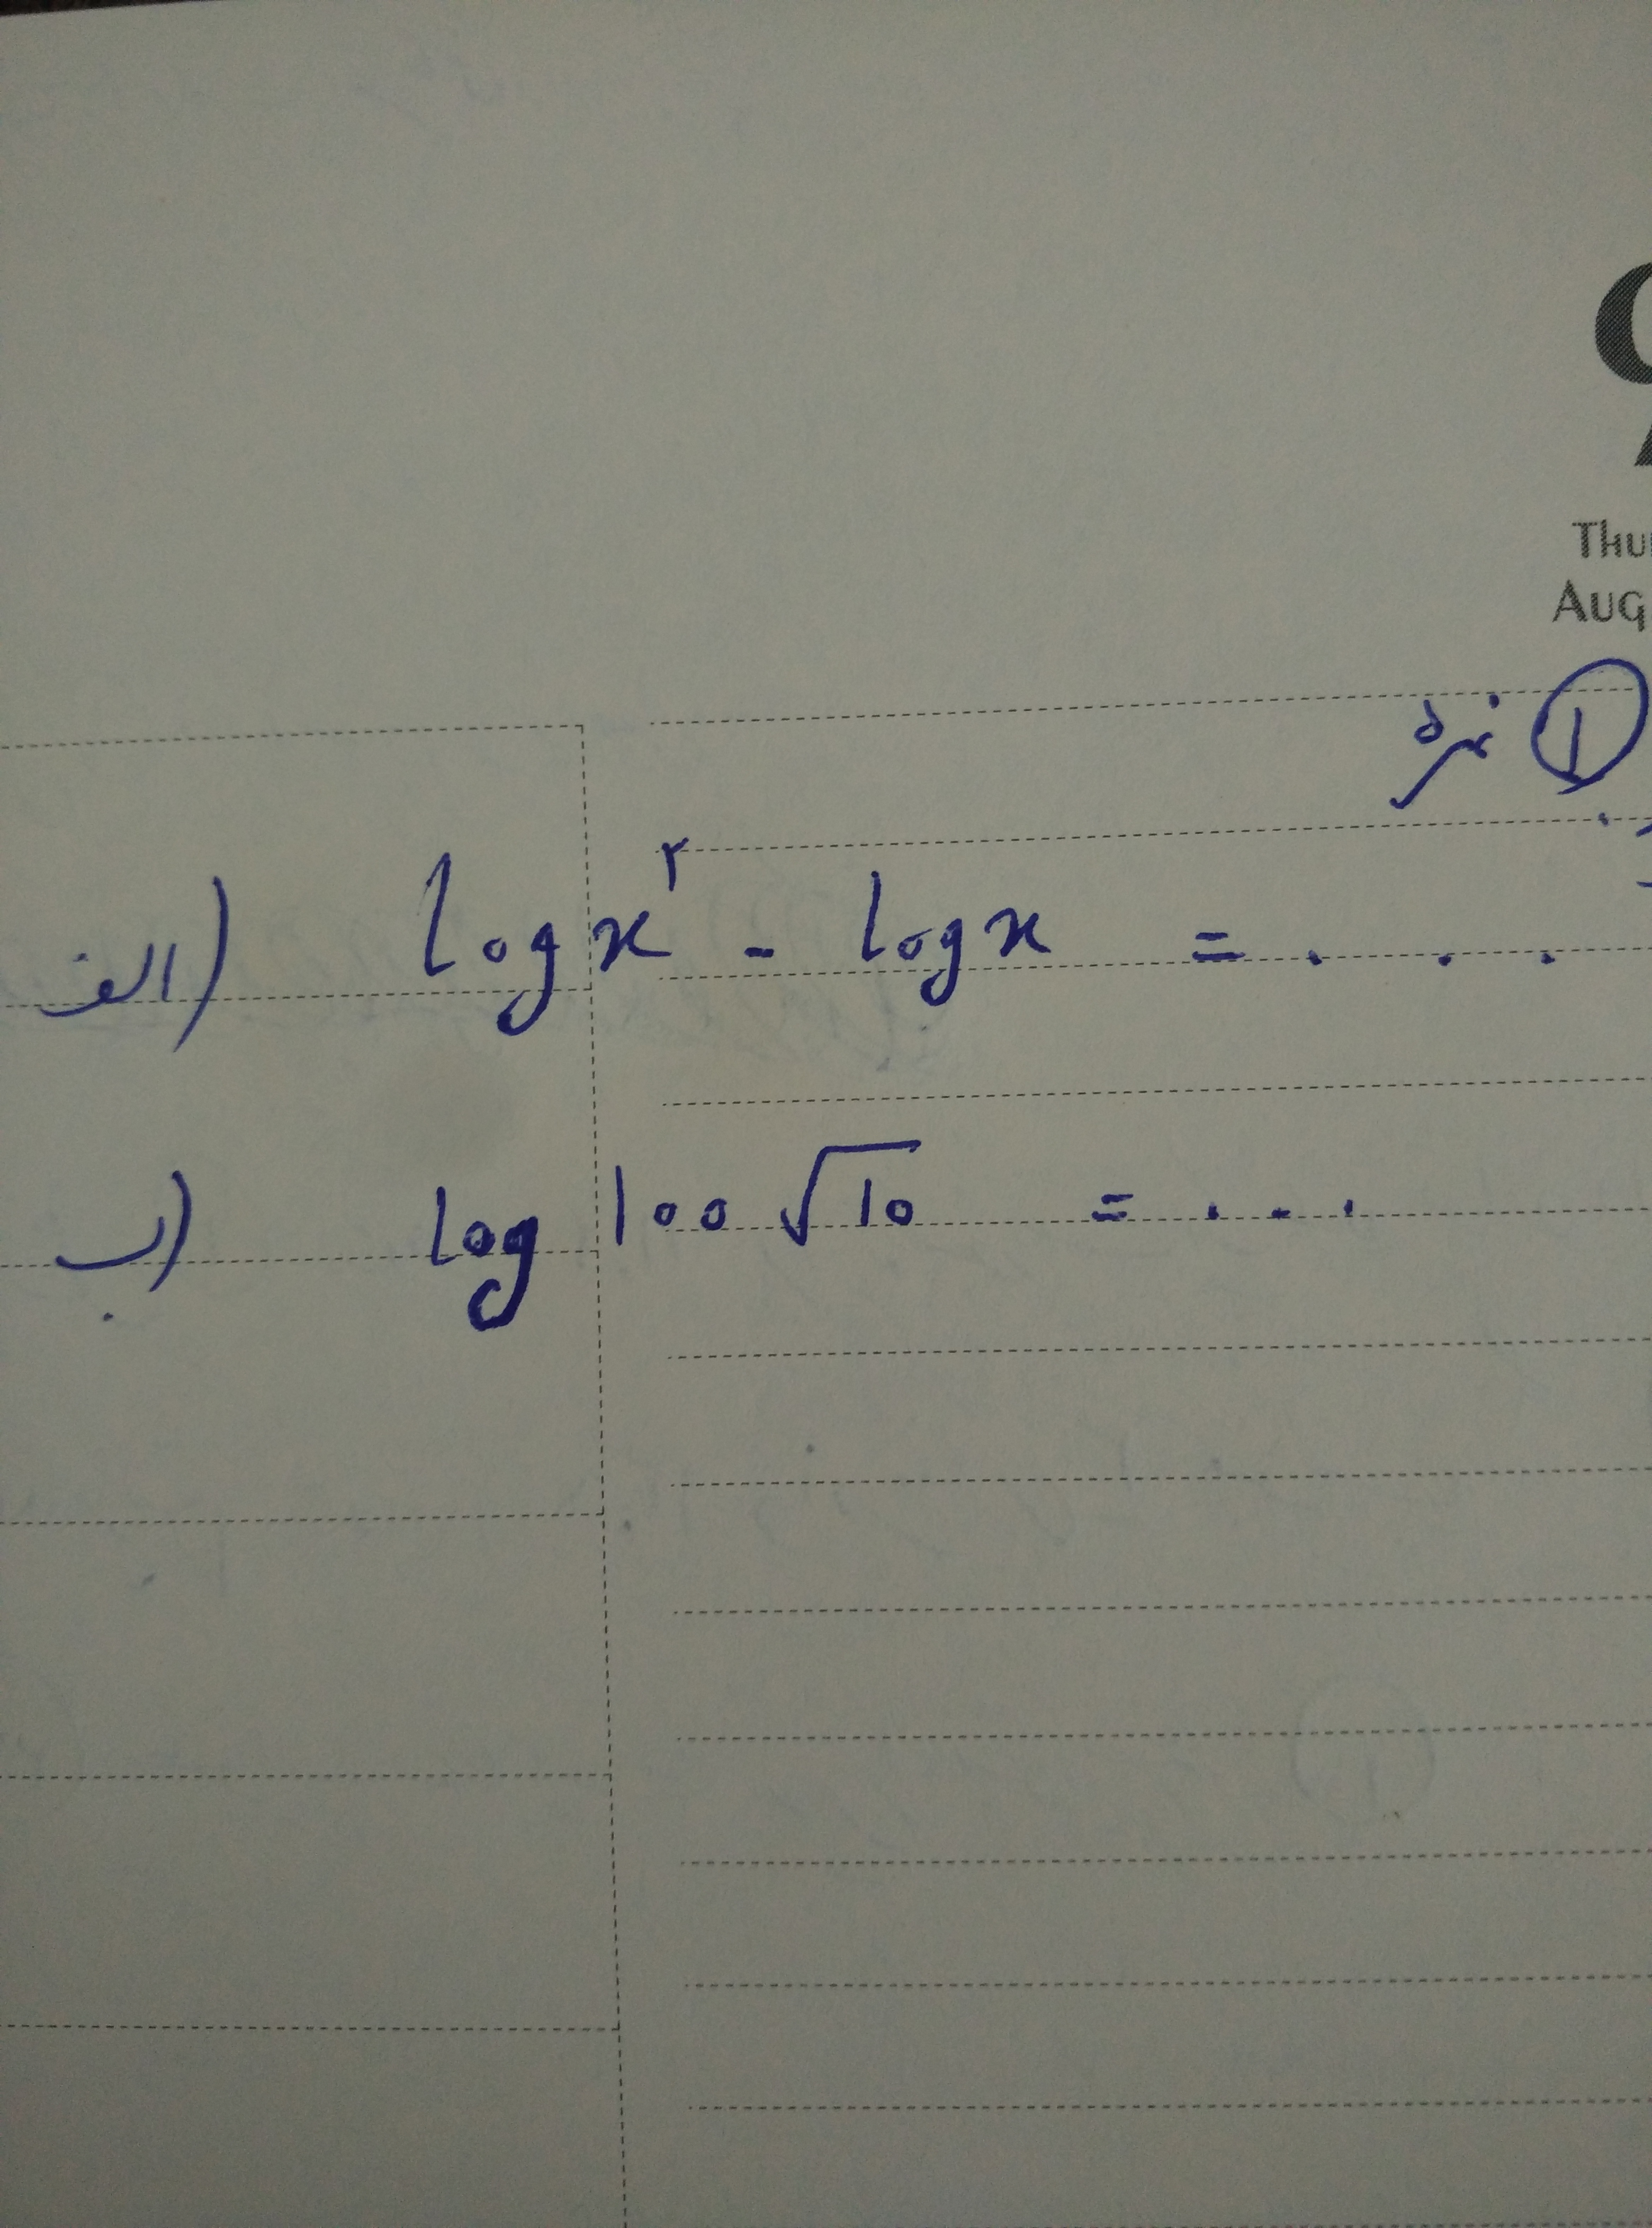 Thu
Aug
① نمره
الف) log x² - log x = . . .
ب) log 100 √10 = . . .